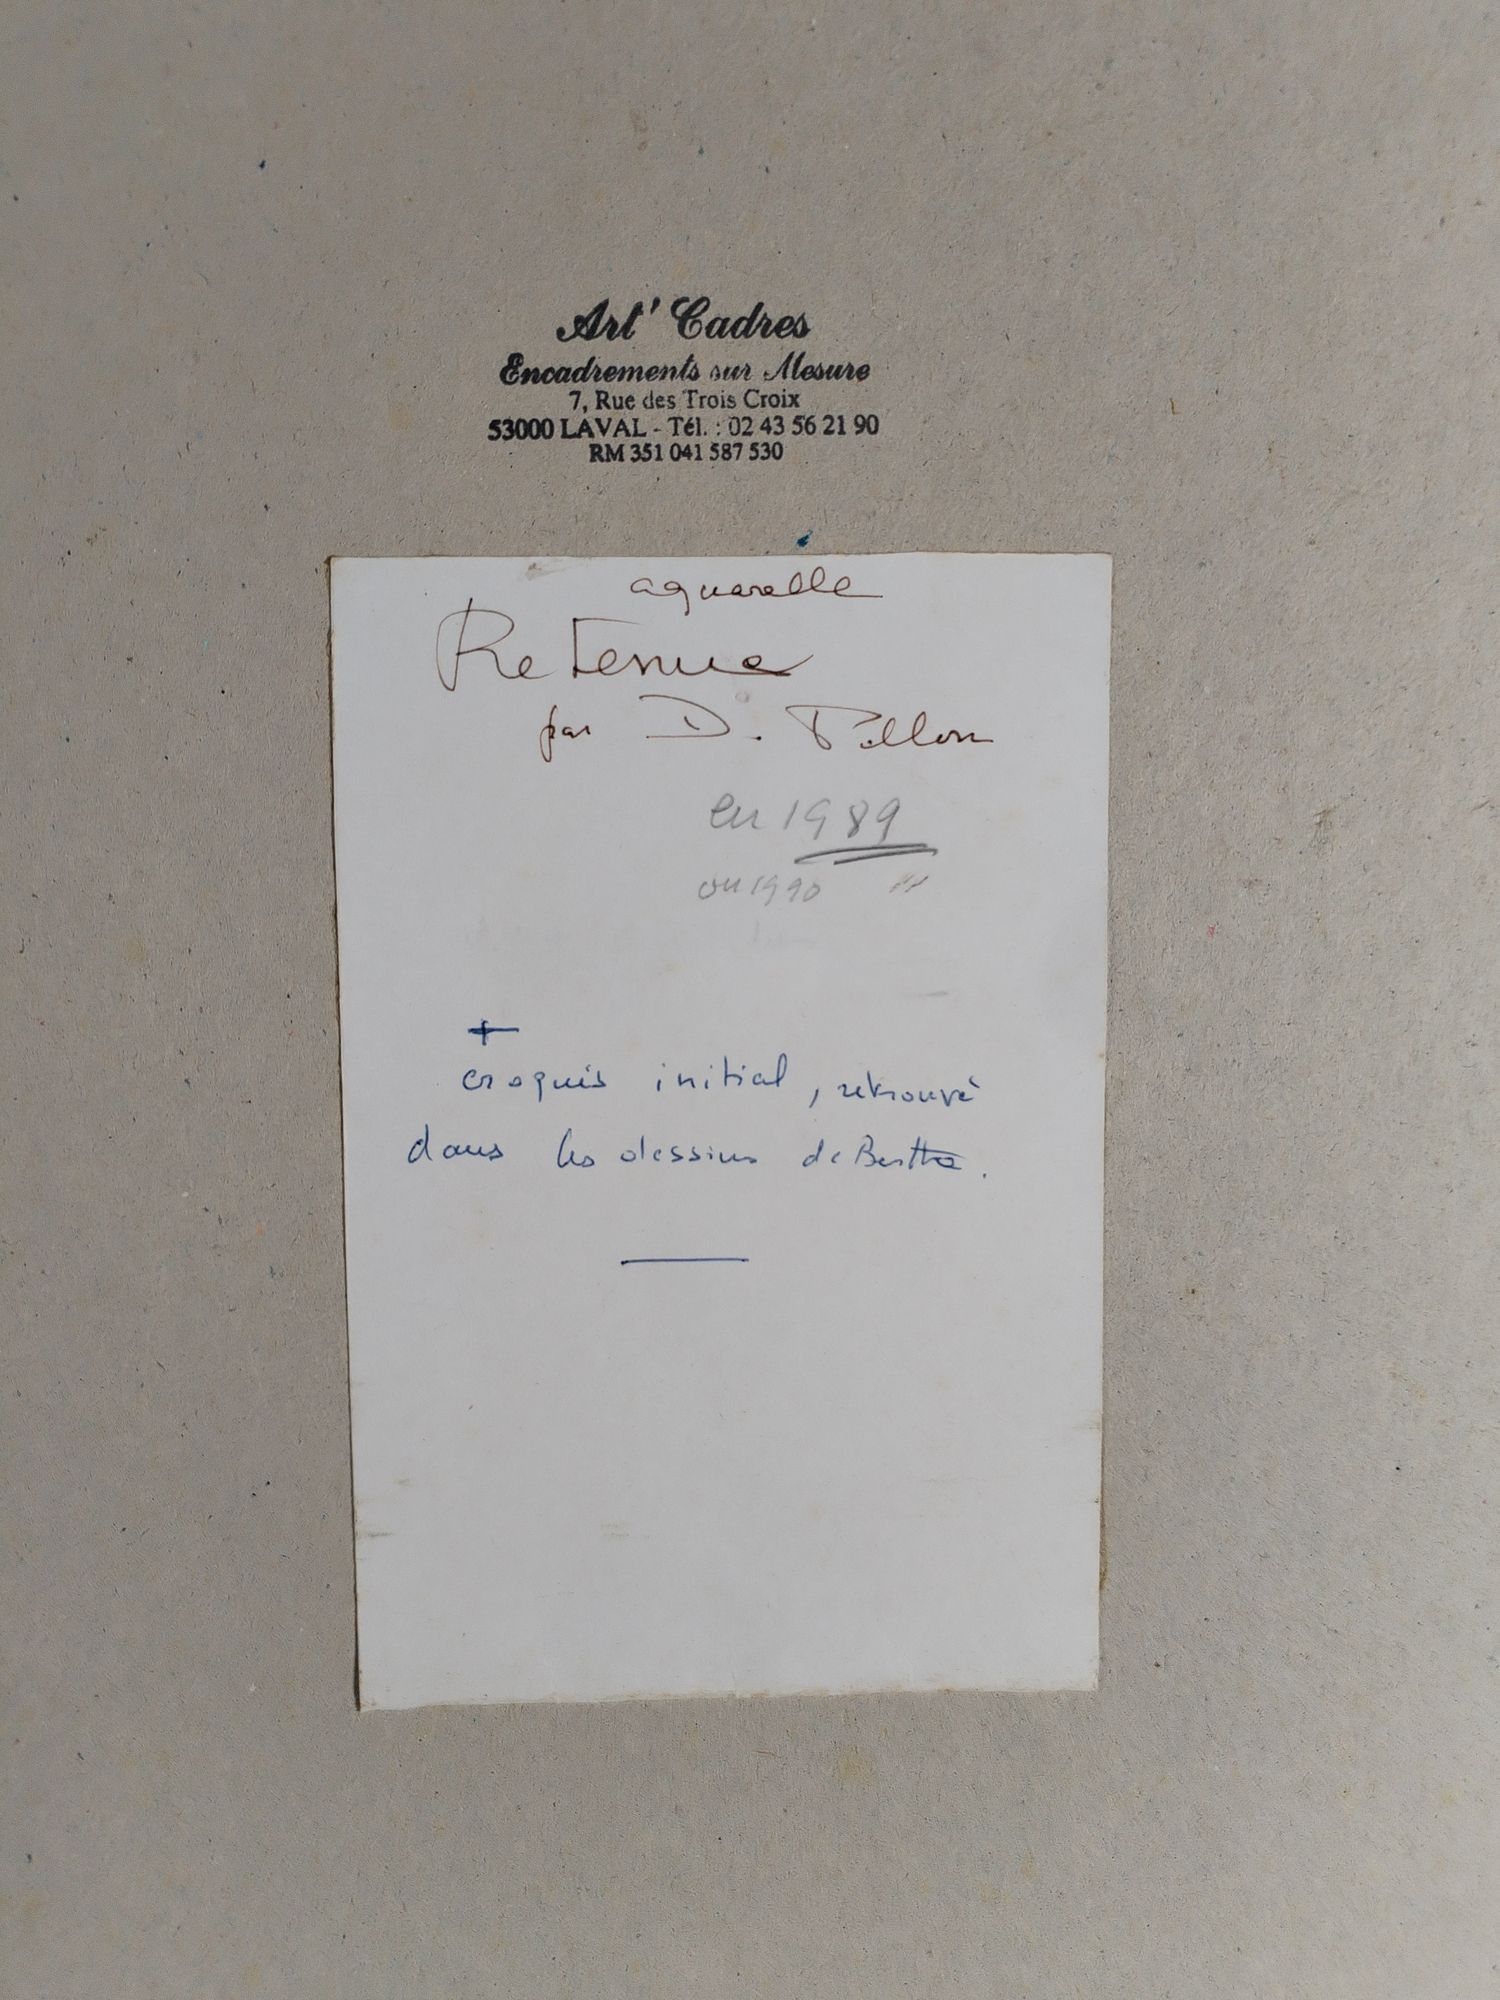 Art' Cadres
Encadrements sur Mesure
7, Rue des Trois Croix
53000 LAVAL - Tél. : 02 43 56 21 90
RM 351 041 587 530
aquarelle
Retenue
par D. Pillon
en 1989
ou 1990
+
croquis initial, retrouvé
dans les dessins de Berthe.